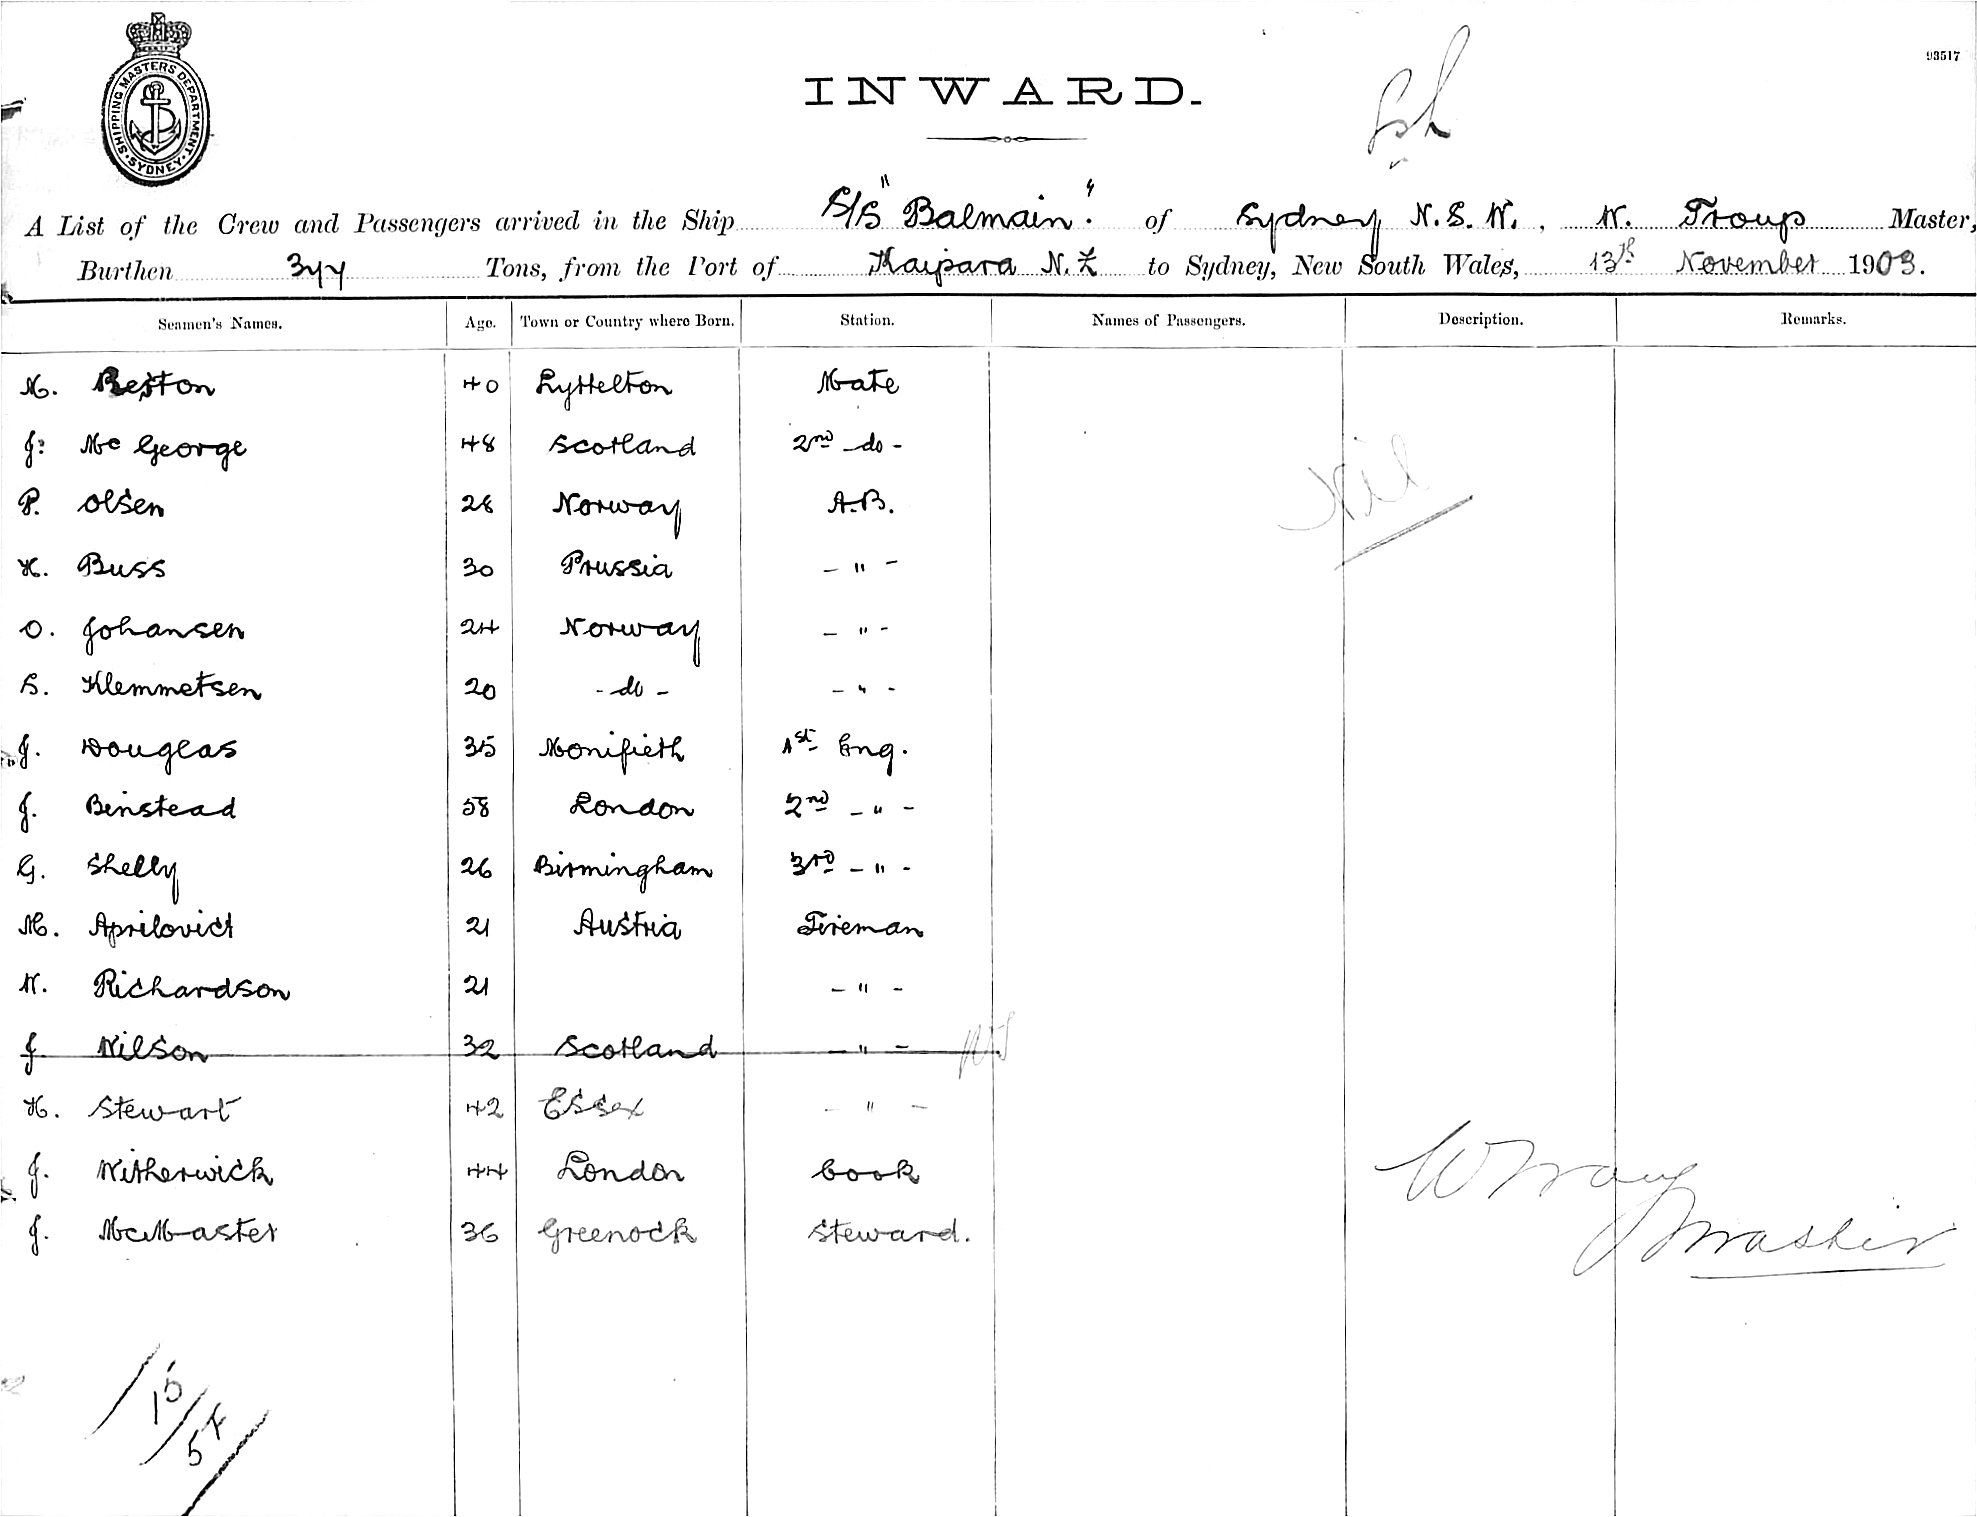 SHIPPING MASTERS DEPARTMENT. SYDNEY
93517
INWARD.
A List of the Crew and Passengers arrived in the Ship S/S "Balmain" of Sydney N.S.W., W. Troup Master,
Burthen 377 Tons, from the Port of Kaipara N.Z to Sydney, New South Wales, 13th November 1903.
Seamen's Names. Age. Town or Country where Born. Station. Names of Passengers. Description. Remarks.
M. Beston 40 Lyttelton Mate
J. Mc George 48 Scotland 2nd -do-
Nil
P. Olsen 28 Norway A.B.
H. Buss 30 Prussia - " -
O. Johansen 24 Norway - " -
S. Klemmetsen 20 -do- - " -
J. Douglas 35 Monifieth 1st Eng.
J. Binstead 58 London 2nd - " -
G. Shelly 26 Birmingham 3rd - " -
M. Aprilovict 21 Austria Fireman
W. Richardson 21 - " -
J Wilson 32 Scotland - " -
H. Stewart 42 Essex - " -
J. Witherwick 44 London Cook
J. McMaster 36 Greenock Steward.
W Troup
Master
15
54